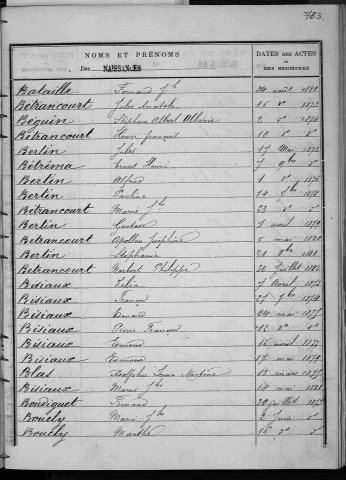 783.
NOMS ET PRÉNOMS
Des NAISSANCES
DATES DES ACTES
ET DES REGISTRES
Bataille Fernand Jh 24 août 1881
Betrancourt Jules 16 8e 1873
Béquin Stéphane Albert Alberic 2 1874
Bétrancourt Henri françois 10 8e do
Bertin Jules 17 Mai 1875
Bétrima Ernest Henri 7 9bre do
Bertin Alfred 1 do 1876
Bertin Pauline 24 7bre 1878
Bétrancourt Marie Jh 23 do do
Bertin Gustave 1 avril 1879
Betrancourt Apolline Joséphine 5 mai 1880
Bertin Stéphanie 20 8e 1881
Bétrancourt Norbert Philippe 30 juillet 1882
Bisiaux Zélia 7 Avril 1873
Bisiaux François 27 7bre 1874
Bisiaux Edouard 24 mai 1875
Bisiaux Pierre François 12 8e do
Bisiaux Edmond 16 avril 1877
Bisiaux Edmond 17 mai 1879
Blas Adolphe 13 mars 1875
Bisiaux Marie Jhe 14 mai 1881
Bondiguet Fernand 30 juillet 1873
Boucly Marie Jhe 2 Juin do
Boucly Marthe 16 do do